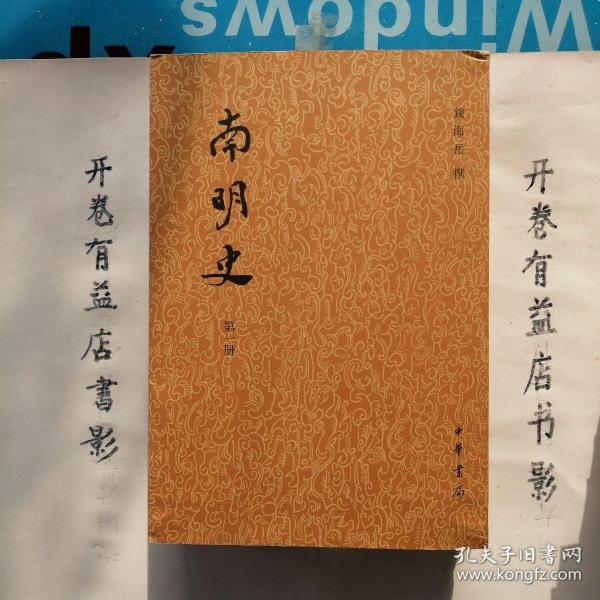 Windows
xp
开卷有益店書影
南明史
第一册
錢海岳 撰
中華書局
开卷有益店书影
孔夫子旧书网
www.kongfz.com